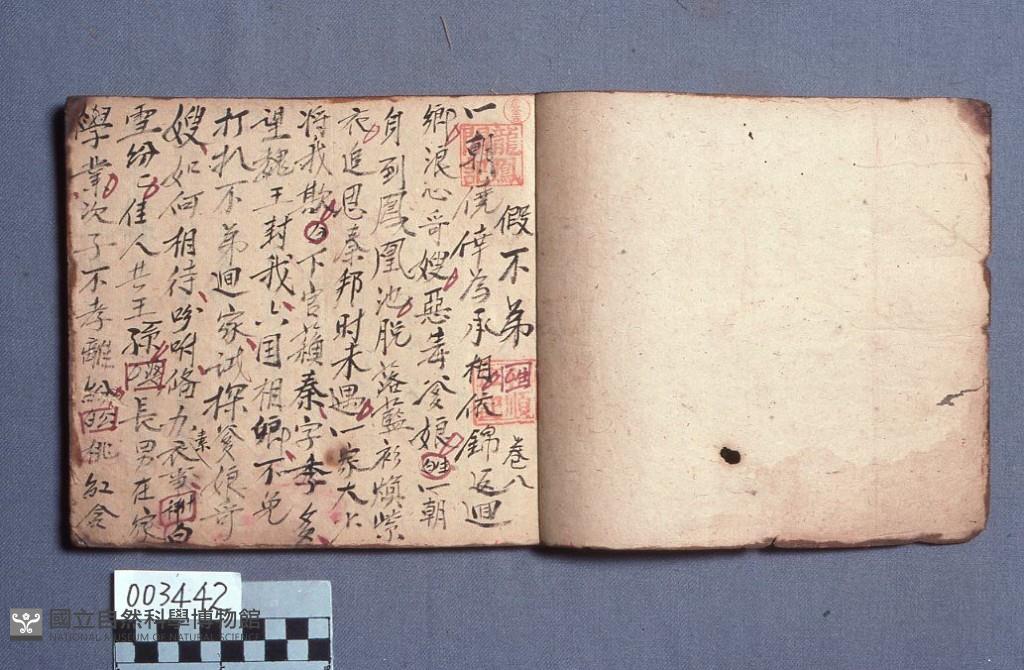 假不弟 卷八
一朝僥倖為承相依錦返迴
鄉浪心哥嫂惡毒爹娘 一朝
身到鳳凰池脫落藍衫煥紫
衣追恩秦邦时未遇一家大小
将我欺 下官蘓秦字季
望魏王封我六国相 不免
打扒不弟迴家试探爹娘哥
嫂如何相待吩咐俻力衣 白
雪紛二佳人共王孫 長男在家
學業次子不孝離 红
龍鳳
003442
國立自然科學博物館
NATIONAL MUSEUM OF NATURAL SCIENCE